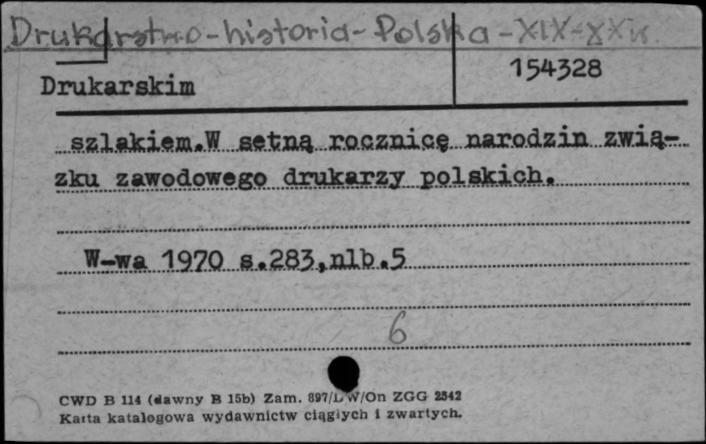 Drukarstwo-historia-Polska-XIX-XXw.
154328
Drukarskim
szlakiem.W setną rocznicę narodzin zwią-
zku zawodowego drukarzy polskich.
W-wa 1970 s.283,nlb.5
6
CWD B 114 (dawny B 15b) Zam. 897/LW/On ZGG 2542
Karta katalogowa wydawnictw ciągłych i zwartych.